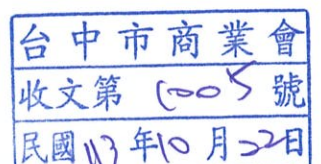 台中市商業會
收文第 1005 號
民國 113 年 10 月 22 日